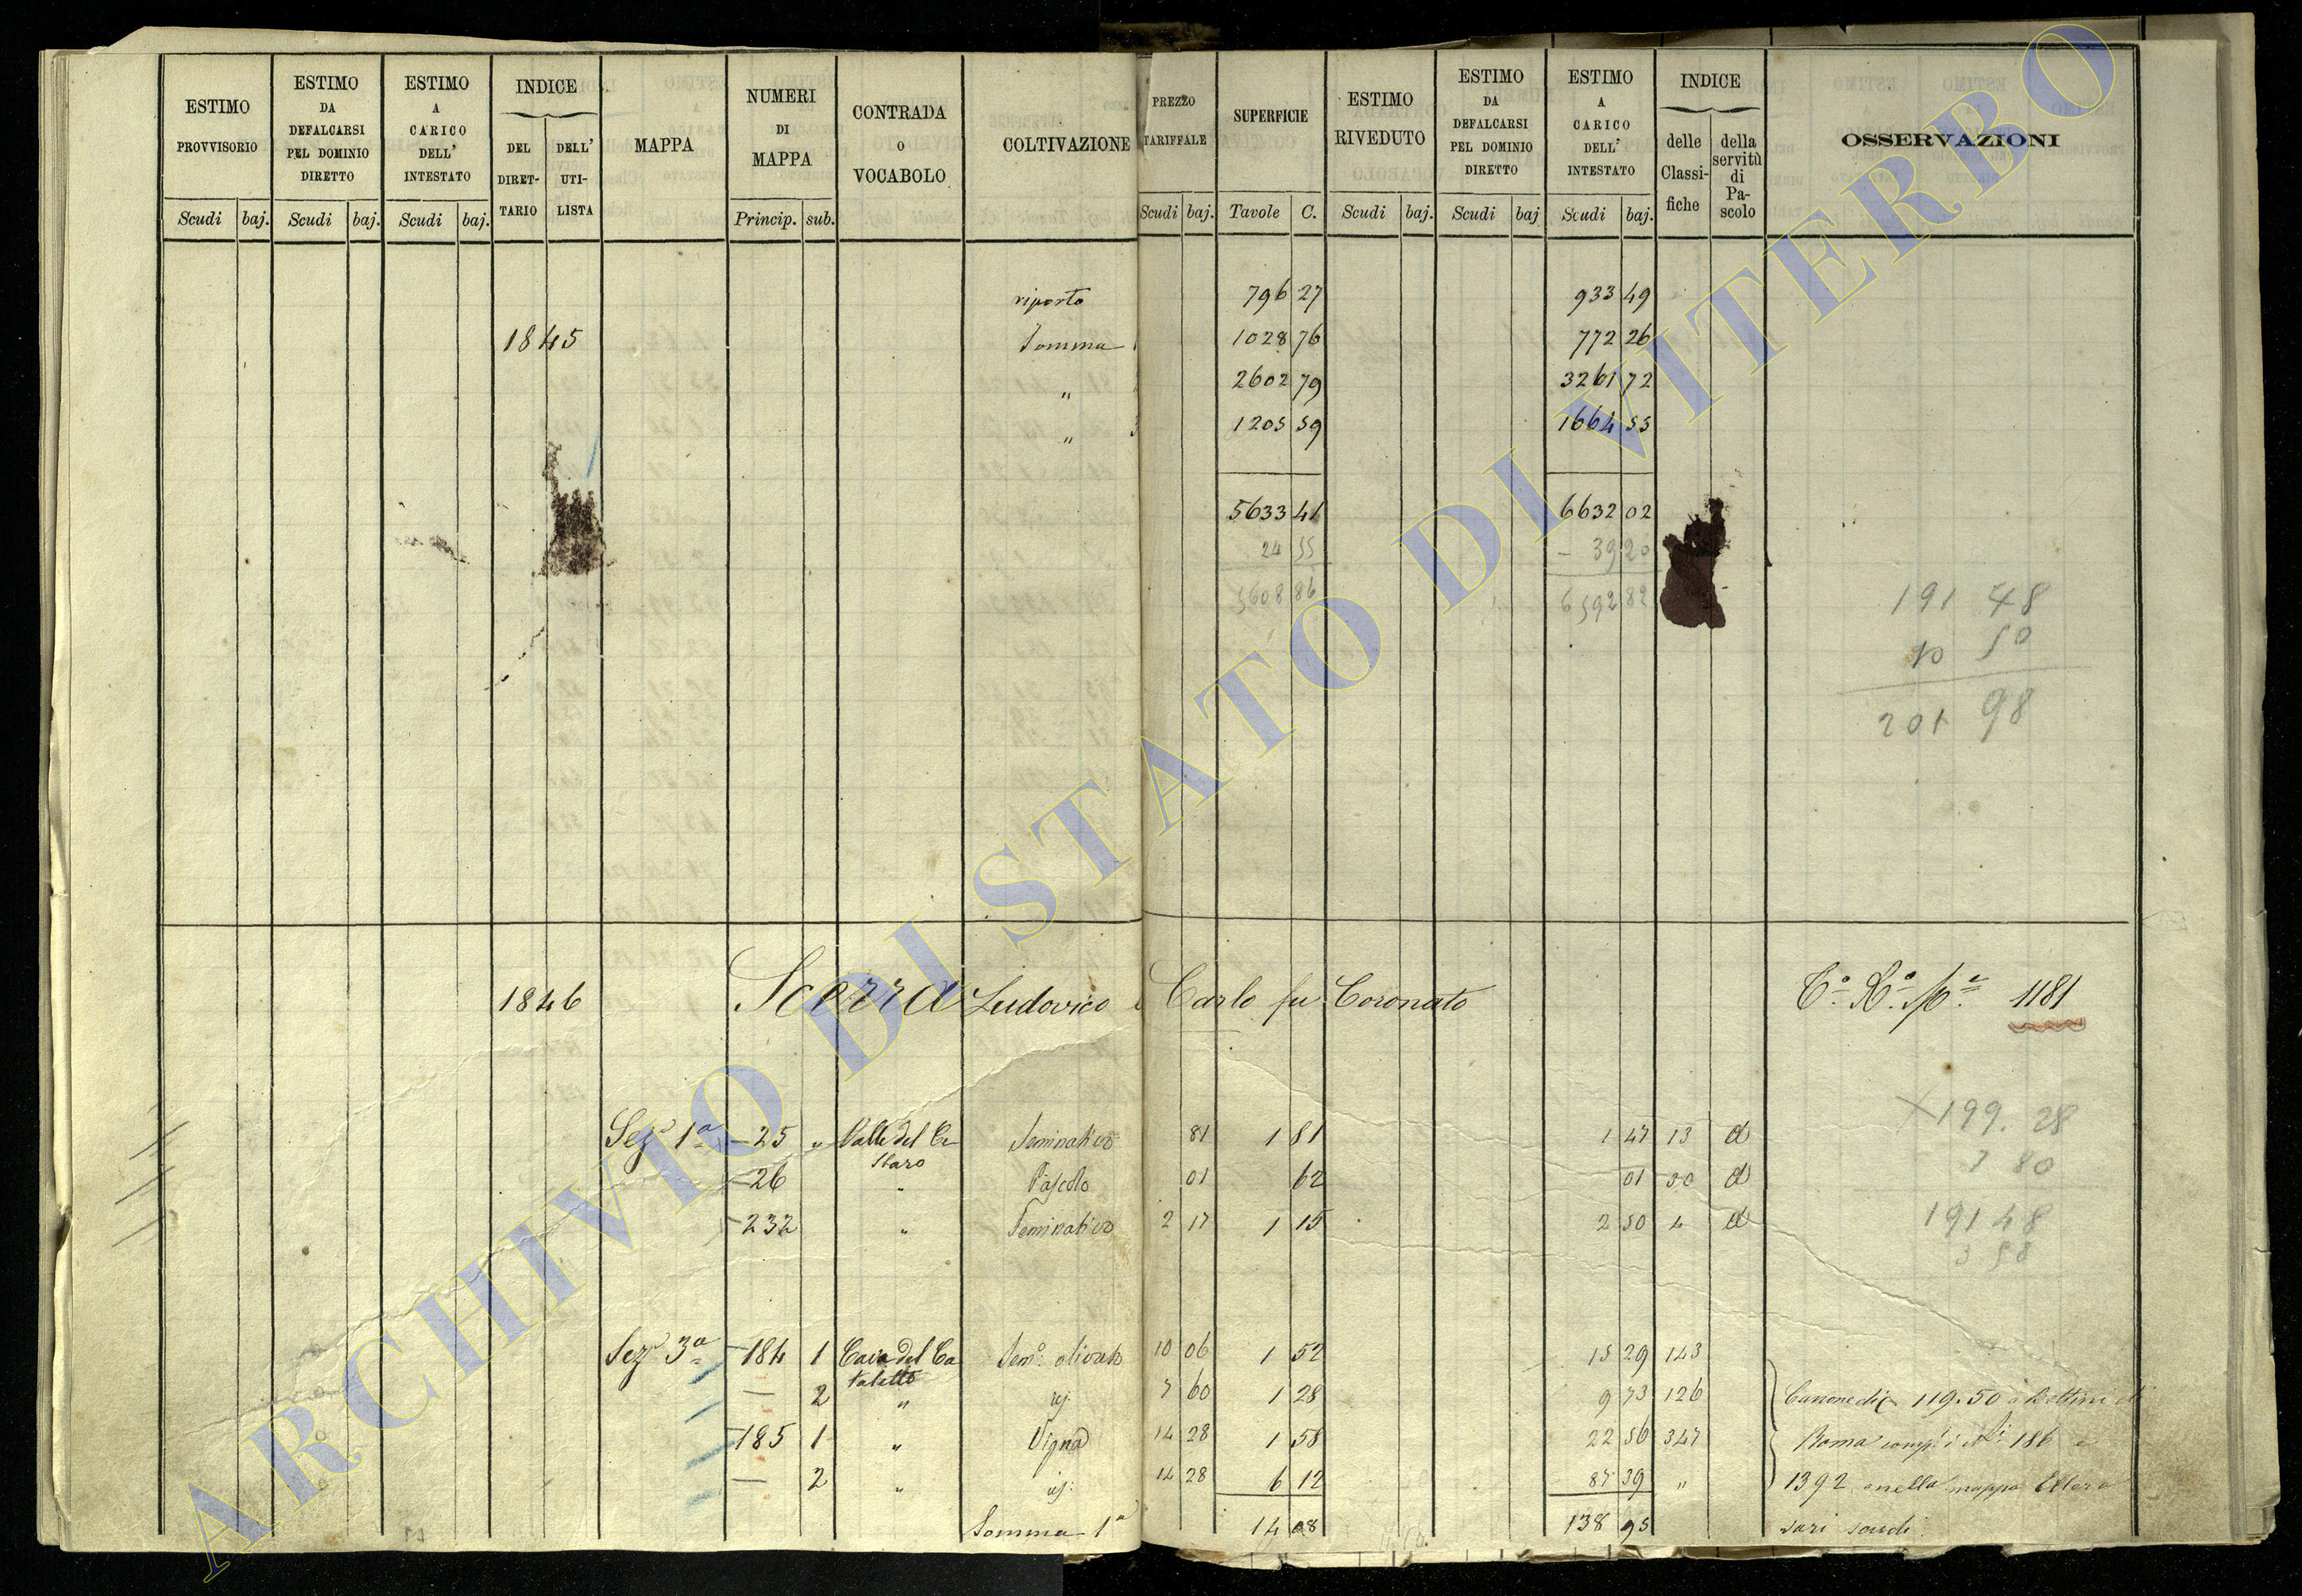 ESTIMO PROVVISORIO
Scudi baj.
ESTIMO DA DEFALCARSI PEL DOMINIO DIRETTO
Scudi baj.
ESTIMO A CARICO DELL' INTESTATO
Scudi baj.
INDICE
DEL DIRET-TARIO
DELL' UTI-LISTA
MAPPA
NUMERI DI MAPPA
Princip. sub.
CONTRADA O VOCABOLO
COLTIVAZIONE
PREZZO TARIFFALE
Scudi baj.
SUPERFICIE
Tavole C.
ESTIMO RIVEDUTO
Scudi baj.
ESTIMO DA DEFALCARSI PEL DOMINIO DIRETTO
Scudi baj
ESTIMO A CARICO DELL' INTESTATO
Scudi baj.
INDICE
delle Classi-fiche
della servitù di Pa-scolo
OSSERVAZIONI
riporto 796 27 933 49
1845 Somma 1 1028 76 772 26
" 2602 79 3261 72
" 3 1205 59 1664 55
5633 41 6632 02
24 55 – 39 20
5608 86 6592 82
191 48
10 50
201 98
1846 Scerra Ludovico e Carlo fu Coronato 1181
Sez. 1a 25 " Valle del Ce- Seminativo 81 1 81 1 47 13 d
staro
26 " Pascolo 01 62 01 50 d
232 " Seminativo 2 17 1 15 2 50 4 d
199. 28
7 80
191 48
3 58
Sez. 3a 184 1 Cava del Ca Semo. olivato 10 06 1 52 15 29 143
taletto
— 2 " id. 7 60 1 28 9 73 126
185 1 " Vigna 14 28 1 58 22 56 347
— 2 " id: 14 28 6 12 87 39 "
Somma 1a 14 08 138 95
Canone di 119.50 a Bettini di
Roma comp. i Ni 186 e
1392 nella mappa Ettora
sari scudi.
ARCHIVIO DI STATO DI VITERBO